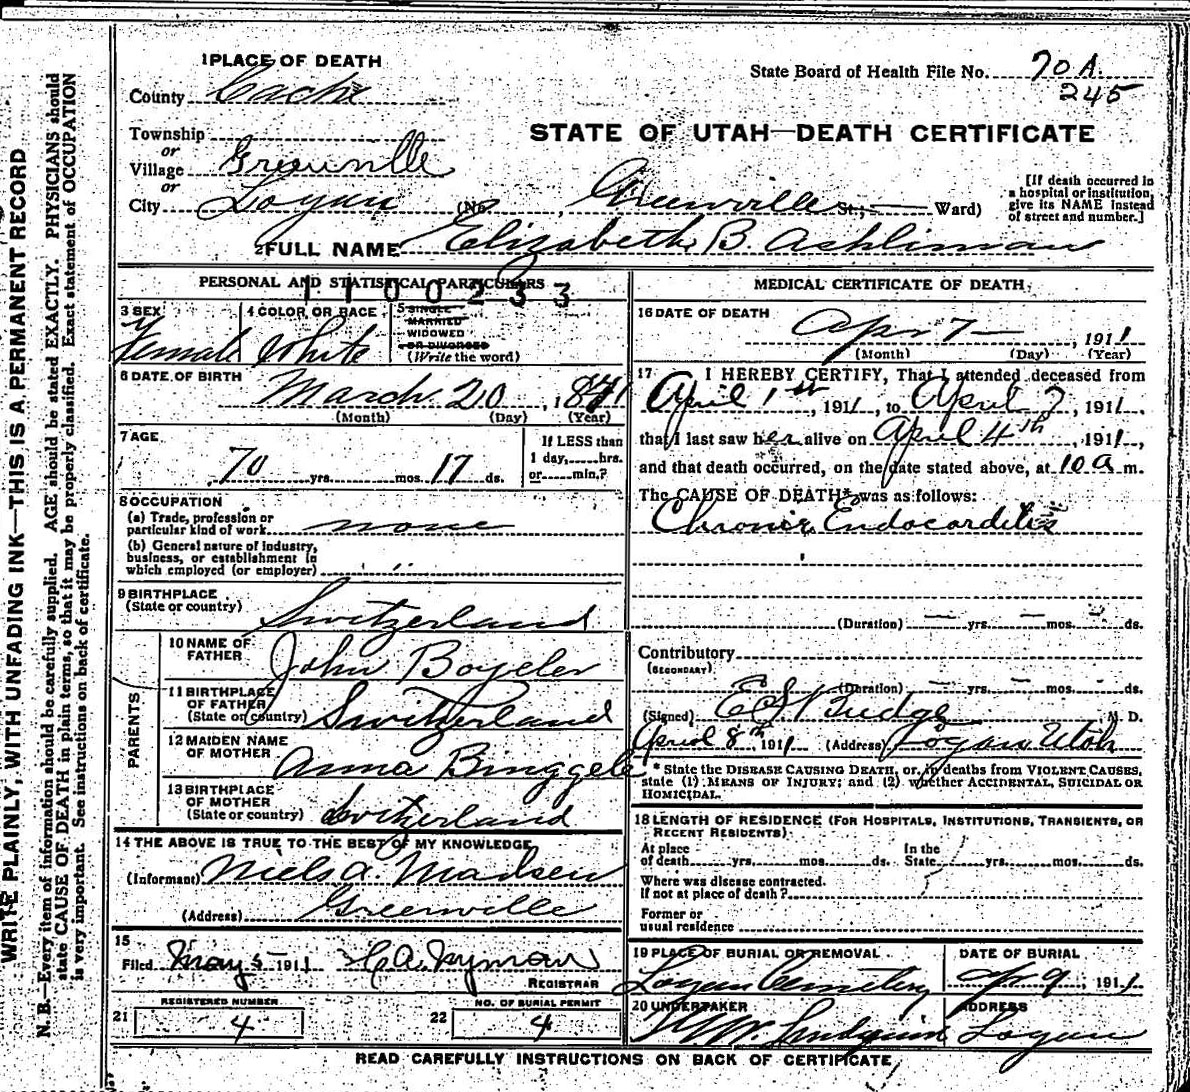 WRITE PLAINLY, WITH UNFADING INK—THIS IS A PERMANENT RECORD
N. B.—Every item of information should be carefully supplied. AGE should be stated EXACTLY. PHYSICIANS should
state CAUSE OF DEATH in plain terms, so that it may be properly classified. Exact statement of OCCUPATION
is very important. See instructions on back of certificate.
1 PLACE OF DEATH
County Cache
Township
or
Village Greenville
or
City Logan
State Board of Health File No. 70 A
245
STATE OF UTAH—DEATH CERTIFICATE
(No. , Greenville St.; — Ward)
[If death occurred in
a hospital or institution,
give its NAME instead
of street and number.]
2 FULL NAME Elizabeth B. Ashliman
PERSONAL AND STATISTICAL PARTICULARS
1100233
3 SEX
Female
4 COLOR OR RACE
White
5 SINGLE
MARRIED
WIDOWED
OR DIVORCED
(Write the word)
6 DATE OF BIRTH
March 20, 1841
(Month) (Day) (Year)
7 AGE
70 yrs. mos. 17 ds.
If LESS than
1 day, hrs.
or min.?
8 OCCUPATION
(a) Trade, profession or
particular kind of work none
(b) General nature of industry,
business, or establishment in
which employed (or employer)
9 BIRTHPLACE
(State or country) Switzerland
PARENTS
10 NAME OF
FATHER John Boyeler
11 BIRTHPLACE
OF FATHER
(State or country) Switzerland
12 MAIDEN NAME
OF MOTHER Anna Binggele
13 BIRTHPLACE
OF MOTHER
(State or country) Switzerland
14 THE ABOVE IS TRUE TO THE BEST OF MY KNOWLEDGE
(Informant) Niels A. Madsen
(Address) Greenville
15
Filed May 5 1911
REGISTRAR
21 REGISTERED NUMBER
4
22 NO. OF BURIAL PERMIT
4
MEDICAL CERTIFICATE OF DEATH
16 DATE OF DEATH
Apr 7—, 1911
(Month) (Day) (Year)
17 I HEREBY CERTIFY, That I attended deceased from
April 1st, 1911, to April 7, 1911,
that I last saw her alive on April 4th, 1911,
and that death occurred, on the date stated above, at 10 a m.
The CAUSE OF DEATH* was as follows:
Chronic Endocarditis
(Duration) — yrs. — mos. — ds.
Contributory
(SECONDARY)
(Duration) — yrs. — mos. — ds.
(Signed) E S Budge M. D.
April 8th, 1911 (Address) Logan Utah
* State the DISEASE CAUSING DEATH, or, in deaths from VIOLENT CAUSES,
state (1) MEANS OF INJURY; and (2) whether ACCIDENTAL, SUICIDAL OR
HOMICIDAL.
18 LENGTH OF RESIDENCE (FOR HOSPITALS, INSTITUTIONS, TRANSIENTS, OR
RECENT RESIDENTS)
At place
of death yrs. mos. ds.
In the
State yrs. mos. ds.
Where was disease contracted.
If not at place of death?
Former or
usual residence
19 PLACE OF BURIAL OR REMOVAL
Logan Cemetery
DATE OF BURIAL
Apr 9, 1911
20 UNDERTAKER
ADDRESS
Logan
READ CAREFULLY INSTRUCTIONS ON BACK OF CERTIFICATE